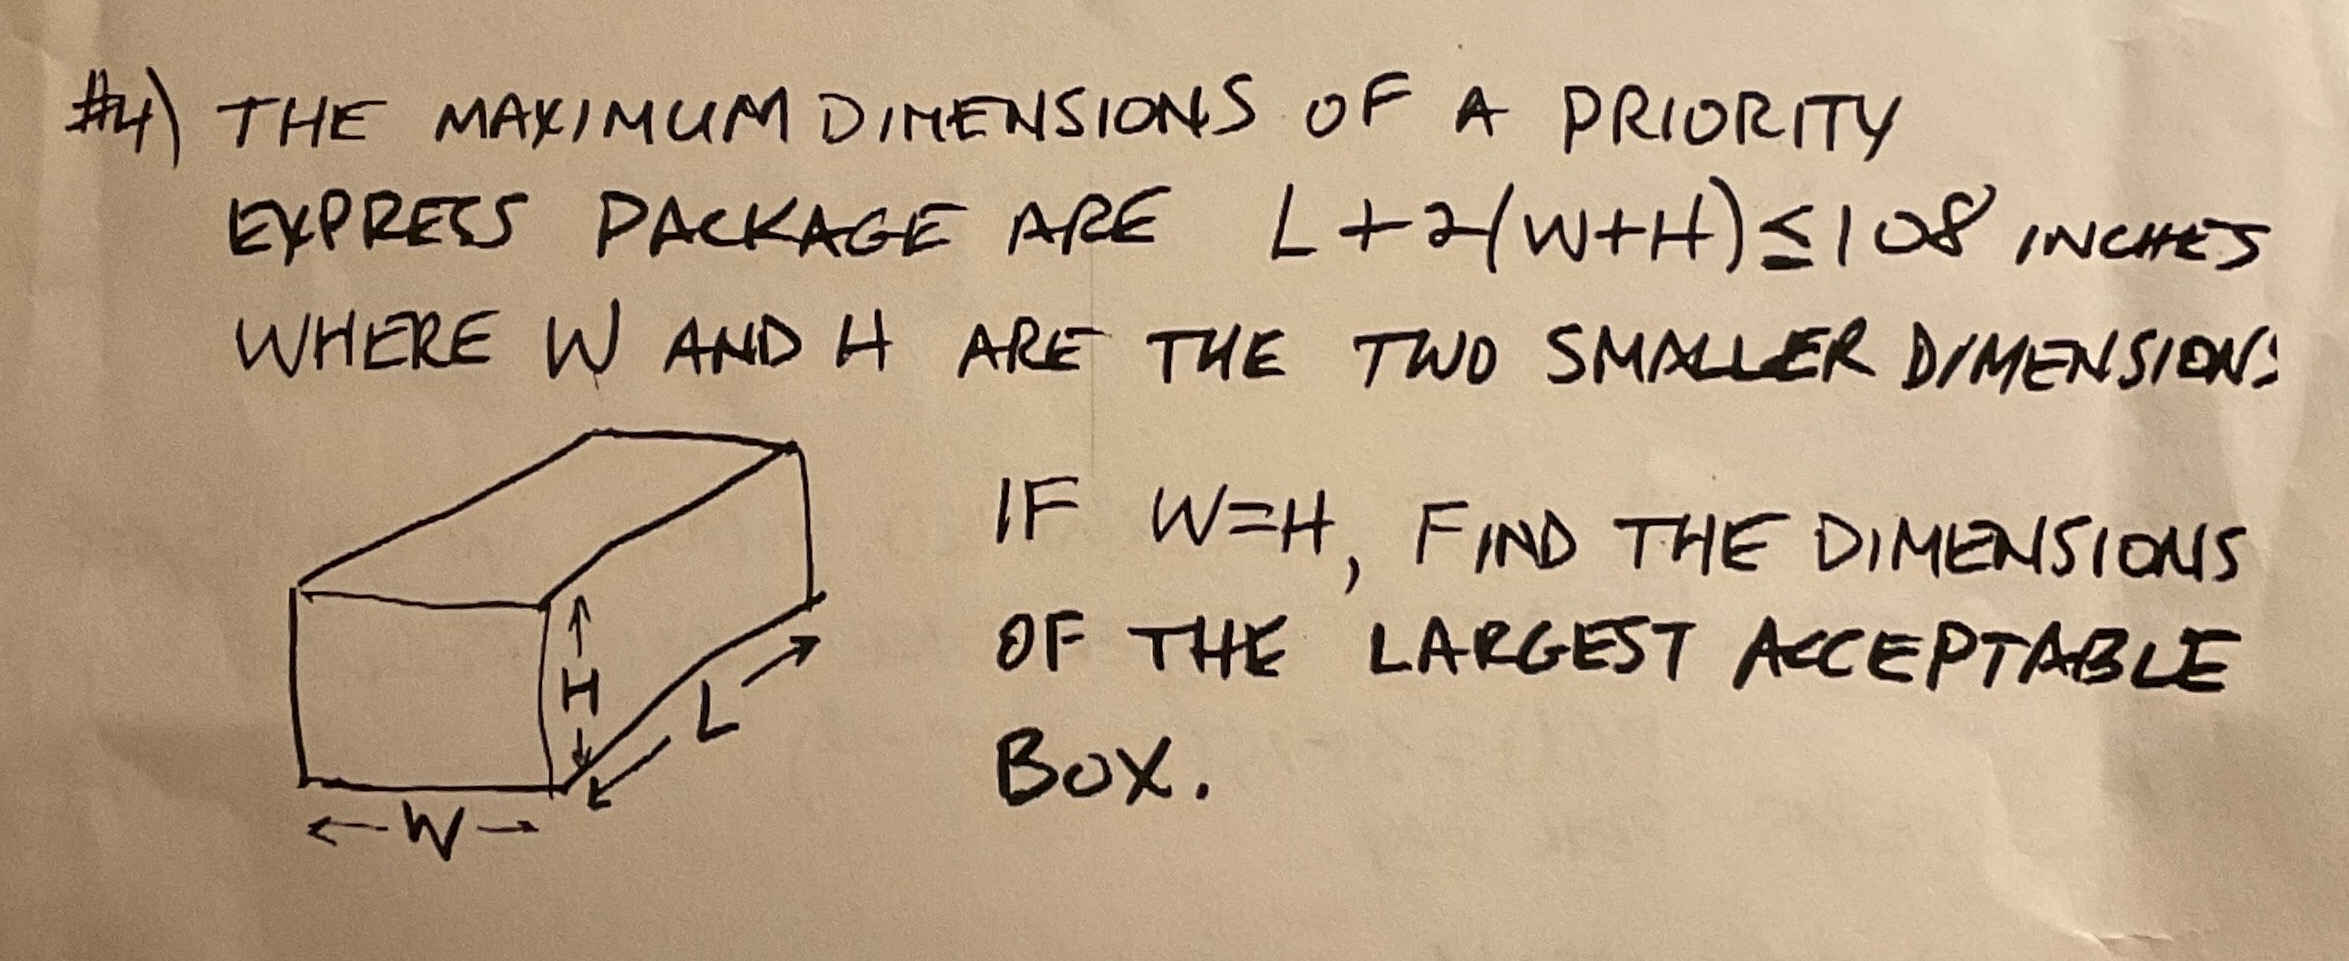 #4) THE MAXIMUM DIMENSIONS OF A PRIORITY
EXPRESS PACKAGE ARE L+2(W+H)≤108 INCHES
WHERE W AND H ARE THE TWO SMALLER DIMENSIONS
IF W=H, FIND THE DIMENSIONS
OF THE LARGEST ACCEPTABLE
BOX.
H
L
W